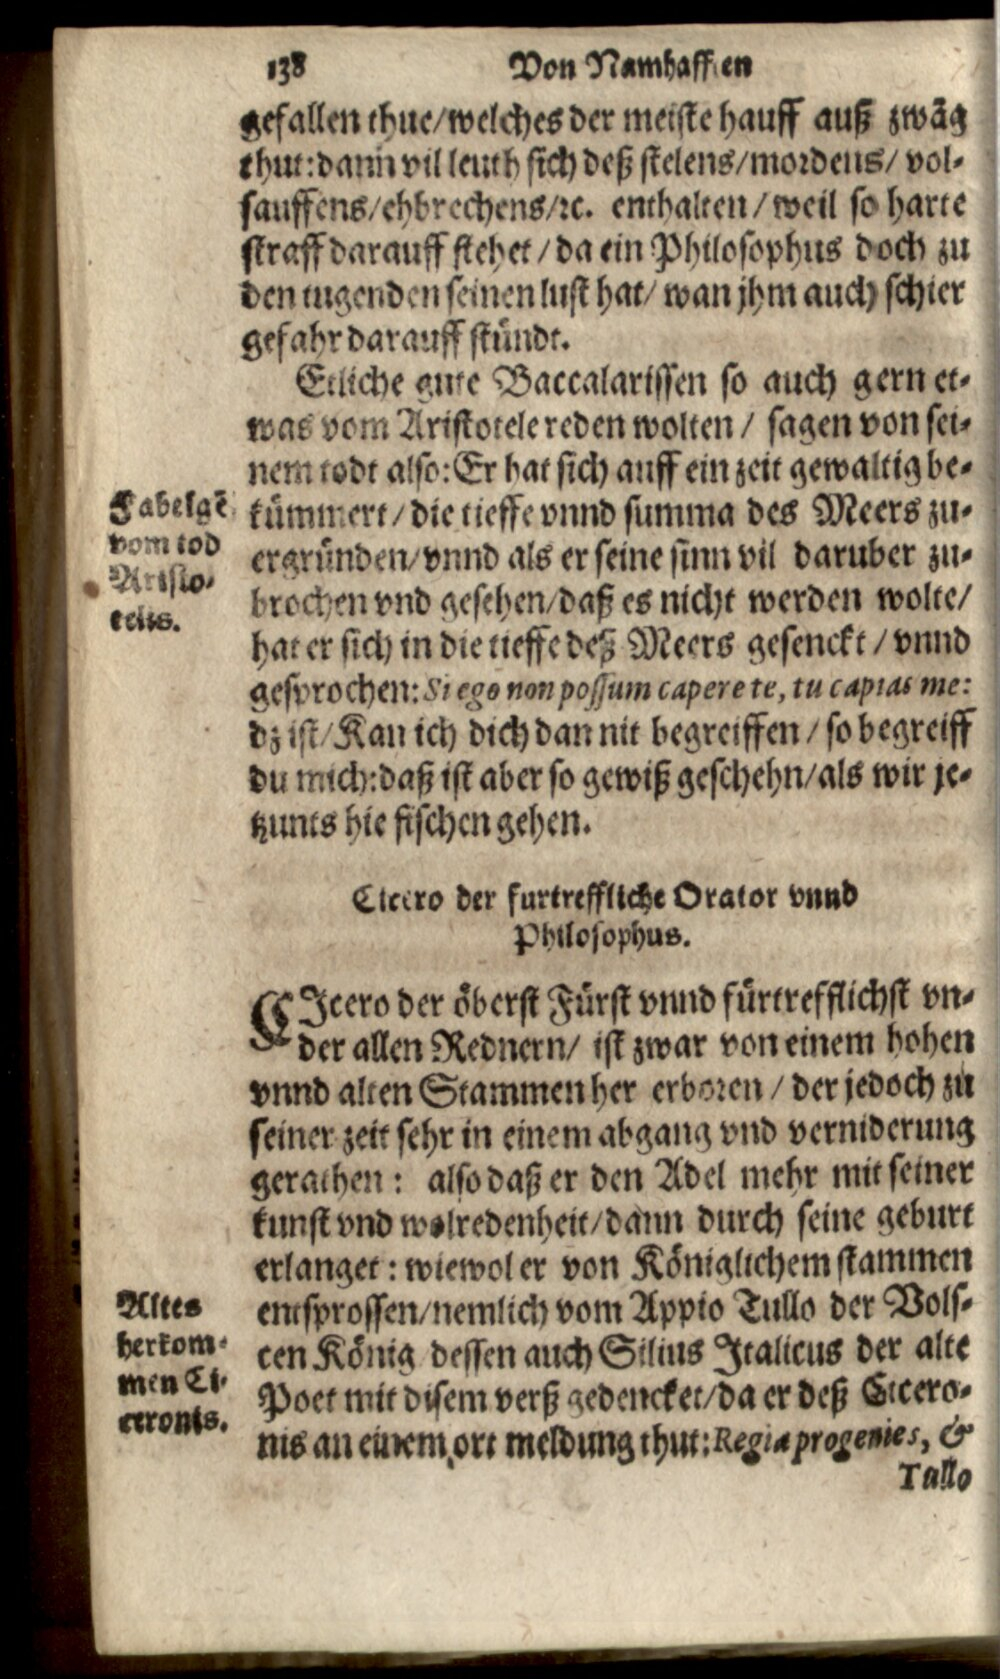 138 Von Namhafften
gefallen thue/welches der meiste hauff auß zwãg
thut: dann vil leuth sich deß stelens/mordens/ vol-
sauffens/ehbrechens/ꝛc. enthalten/weil so harte
straff darauff stehet/da ein Philosophus doch zu
den tugenden seinen lust hat/ wan jhm auch schier
gefahr darauff stündt.
Etliche gute Baccalarissen so auch gern et-
was vom Aristotele reden wolten/ sagen von sei-
nem todt also: Er hat sich auff ein zeit gewaltig be-
kümmert/die tieffe vnnd summa des Meers zu-
ergründen/vnnd als er seine sinn vil daruber zu-
brochen vnd gesehen/daß es nicht werden wolte/
hat er sich in die tieffe deß Meers gesenckt/vnnd
gesprochen: Si ego non possum capere te, tu capias me:
dz ist/Kan ich dich dan nit begreiffen/so begreiff
du mich: daß ist aber so gewiß geschehn/als wir je-
tzunts hie fischen gehen.
Fabelgẽ
vom tod
Aristo-
telis.
Cicero der furtreffliche Orator vnnd
Philosophus.
CIcero der öberst Fürst vnnd fürtrefflichst vn-
der allen Rednern/ ist zwar von einem hohen
vnnd alten Stammen her erboren/der jedoch zu
seiner zeit sehr in einem abgang vnd verniderung
gerathen: also daß er den Adel mehr mit seiner
kunst vnd wolredenheit/dann durch seine geburt
erlanget: wiewol er von Königlichem stammen
entsprossen/nemlich vom Appio Tullo der Vols-
cen König dessen auch Silius Italicus der alte
Poet mit disem verß gedencket/da er deß Cicero-
nis an einem ort meldung thut: Regia progenies, &
Altes
herkom-
men Ci-
ceronis.
Tullo